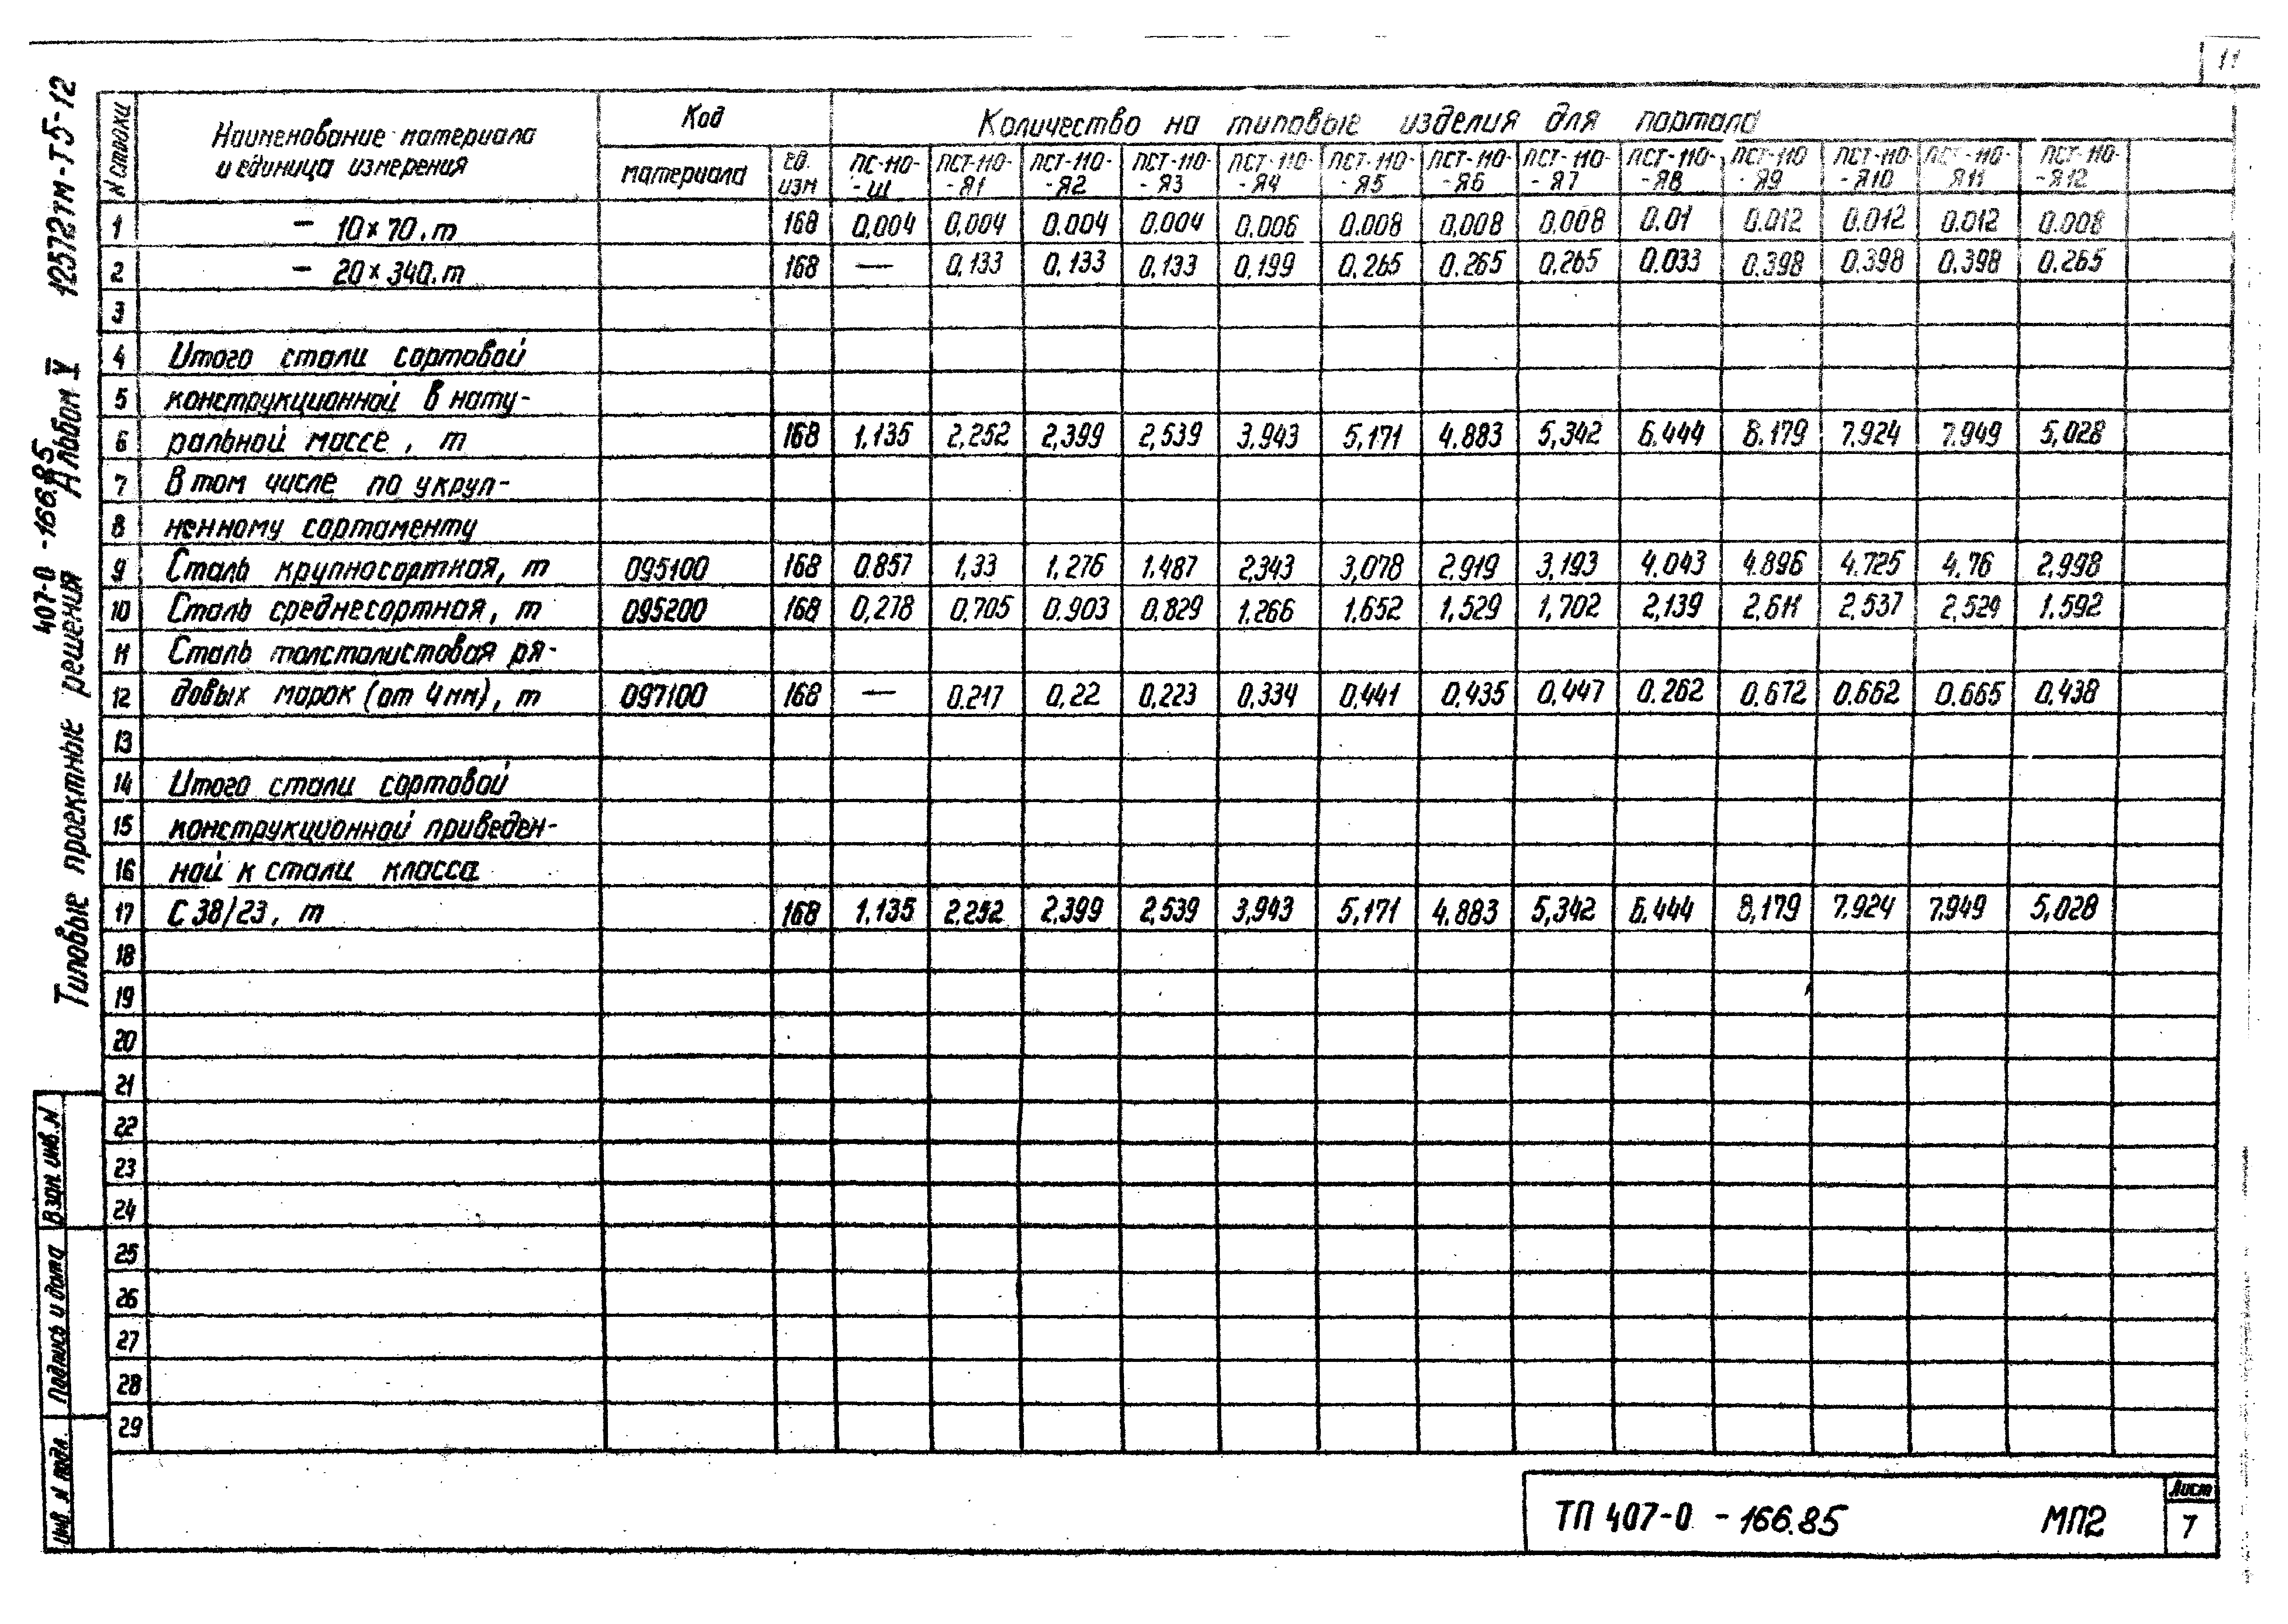 11
12572тм-Т5-12
407-0-166.85 Альбом V
Типовые проектные решения
N строки
Наименование материала
и единица измерения
Код
материала
ед. изм
Количество на типовые изделия для портала
ПС-110-Ш ПСТ-110-Я1 ПСТ-110-Я2 ПСТ-110-Я3 ПСТ-110-Я4 ПСТ-110-Я5 ПСТ-110-Я6 ПСТ-110-Я7 ПСТ-110-Я8 ПСТ-110-Я9 ПСТ-110-Я10 ПСТ-110-Я11 ПСТ-110-Я12
1 – 10×70, т 168 0,004 0,004 0.004 0.004 0.006 0.008 0,008 0,008 0.01 0.012 0.012 0.012 0.008
2 – 20×340. т 168 — 0,133 0,133 0,133 0,199 0,265 0.265 0.265 0.033 0.398 0.398 0.398 0.265
3
4 Итого стали сортовой
5 конструкционной в нату-
6 ральной массе, т 168 1,135 2,252 2,399 2,539 3.943 5,171 4.883 5,342 6.444 8.179 7.924 7.949 5,028
7 В том числе по укруп-
8 ненному сортаменту
9 Сталь крупносортная, т 095100 168 0.857 1,33 1.276 1.487 2,343 3,078 2.919 3,193 4.043 4.896 4.725 4.76 2.998
10 Сталь среднесортная, т 095200 168 0,278 0.705 0.903 0.829 1.266 1.652 1,529 1,702 2,139 2.611 2,537 2,529 1.592
11 Сталь толстолистовая ря-
12 довых марок (от 4 мм), т 097100 168 — 0.217 0,22 0,223 0,334 0,441 0,435 0,447 0.262 0.672 0.662 0.665 0,438
13
14 Итого стали сортовой
15 конструкционной приведен-
16 ной к стали класса
17 С 38/23, т 168 1.135 2.252 2,399 2,539 3,943 5,171 4.883 5,342 6.444 8,179 7.924 7.949 5,028
18
19
20
21
22
23
24
25
26
27
28
29
Взам. инв. N
Подпись и дата
Инв. N подл.
ТП 407-0 -166.85 МП2
Лист
7